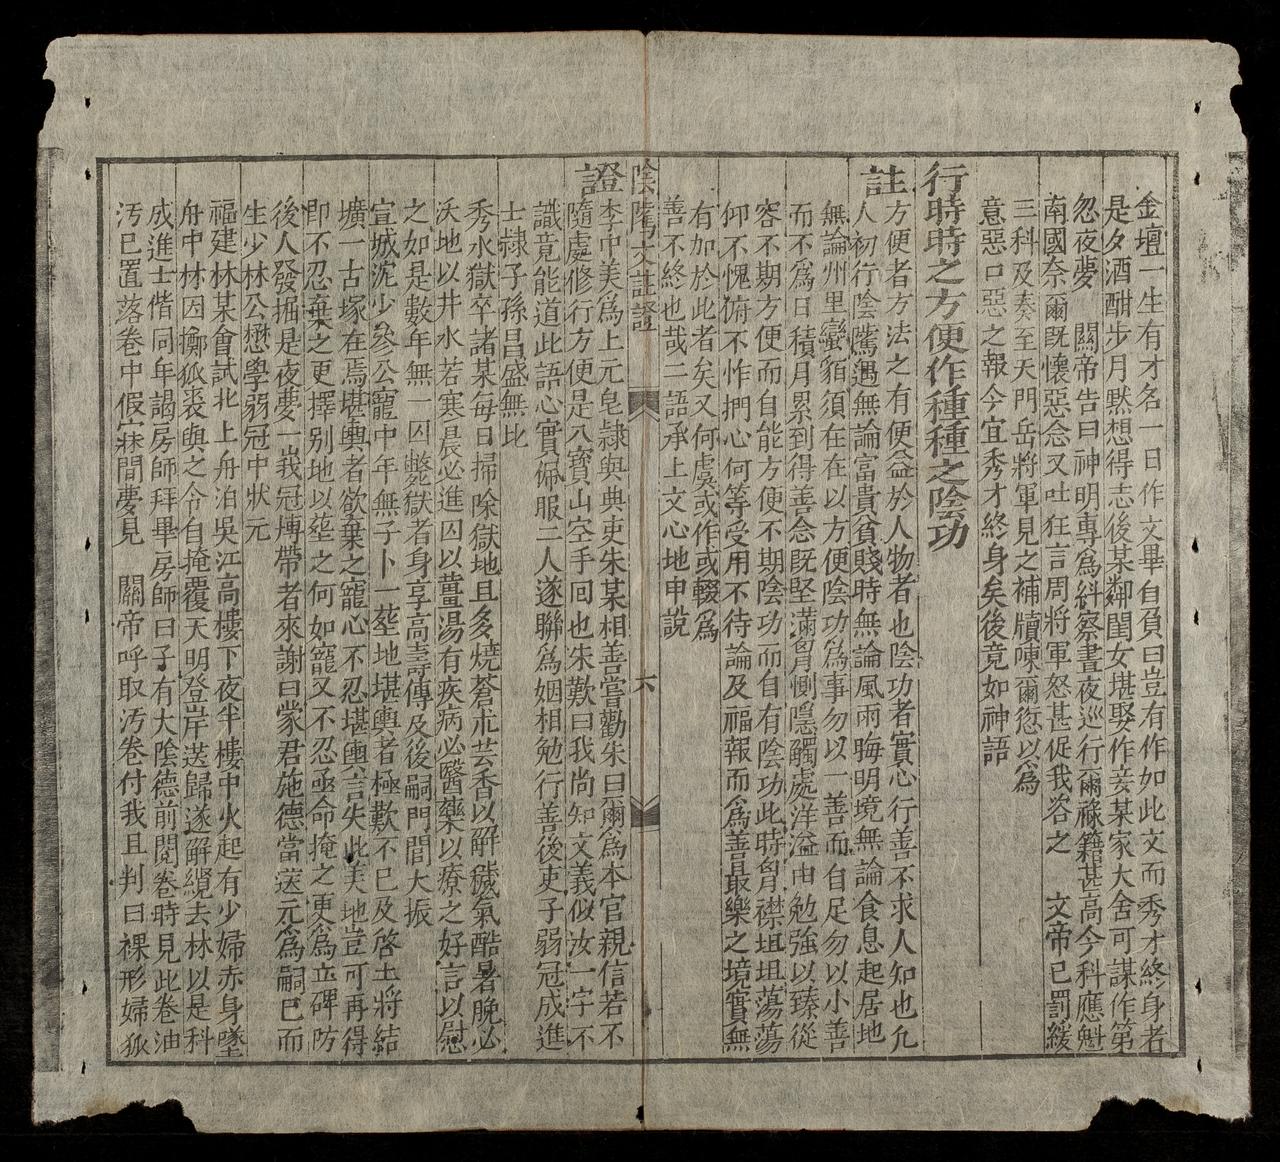 金壇一生有才名一日作文畢自負曰豈有作如此文而秀才終身者
是夕酒酣步月黙想得志後某鄰閨女堪娶作妾某家大舍可謀作第
忽夜夢　關帝告曰神明專爲糾察晝夜巡行爾祿籍甚高今科應魁
南國奈爾既懷惡念又吐狂言周將軍怒甚促我咨之　文帝已罰緩
三科及奏至天門岳將軍見之補牘陳爾愆以爲
意惡口惡之報今宜秀才終身矣後竟如神語
行時時之方便作種種之陰功
註
方便者方法之有便益於人物者也陰功者實心行善不求人知也凡
人初行陰騭遇無論富貴貧賤時無論風雨晦明境無論食息起居地
無論州里蠻貊須在在以方便陰功爲事勿以一善而自足勿以小善
而不爲日積月累到得善念既堅滿胷惻隱觸處洋溢由勉強以臻從
容不期方便而自能方便不期陰功而自有陰功此時胷襟坦坦蕩蕩
仰不愧俯不怍捫心何等受用不待論及福報而爲善最樂之境實無
有加於此者矣又何虞或作或輟爲
善不終也哉二語承上文心地申說
陰騭文註證
六
證
李中美爲上元皂隸與典吏朱某相善嘗勸朱曰爾爲本官親信若不
隨處修行方便是入寶山空手回也朱歎曰我尚知文義似汝一字不
識竟能道此語心實佩服二人遂聯爲姻相勉行善後吏子弱冠成進
士隸子孫昌盛無比
秀水獄卒諸某每日掃除獄地且多燒蒼朮芸香以解穢氣酷暑晚必
沃地以井水若寒晨必進囚以薑湯有疾病必醫藥以療之好言以慰
之如是數年無一囚斃獄者身享高壽傳及後嗣門閭大振
宣城沈少參公寵中年無子卜一塟地堪輿者極歎不已及啓土將結
壙一古塚在焉堪輿者欲棄之寵心不忍堪輿言失此美地豈可再得
即不忍棄之更擇别地以塟之何如寵又不忍亟命掩之更爲立碑防
後人發掘是夜夢一峩冠博帶者來謝曰蒙君施德當送元爲嗣已而
生少林公懋學弱冠中狀元
福建林某會試北上舟泊吳江高樓下夜半樓中火起有少婦赤身墜
舟中林因擲狐裘與之令自掩覆天明登岸送歸遂解纜去林以是科
成進士偕同年謁房師拜畢房師曰子有大陰德前閱卷時見此卷油
汚已置落卷中假寐間夢見　關帝呼取汚卷付我且判曰裸形婦狐